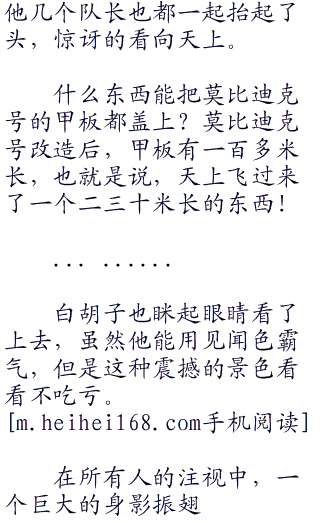 他几个队长也都一起抬起了
头，惊讶的看向天上。
什么东西能把莫比迪克
号的甲板都盖上？莫比迪克
号改造后，甲板有一百多米
长，也就是说，天上飞过来
了一个二三十米长的东西！
... ......
白胡子也眯起眼睛看了
上去，虽然他能用见闻色霸
气，但是这种震撼的景色看
看不吃亏。
[m.heihei168.com手机阅读]
在所有人的注视中，一
个巨大的身影振翅